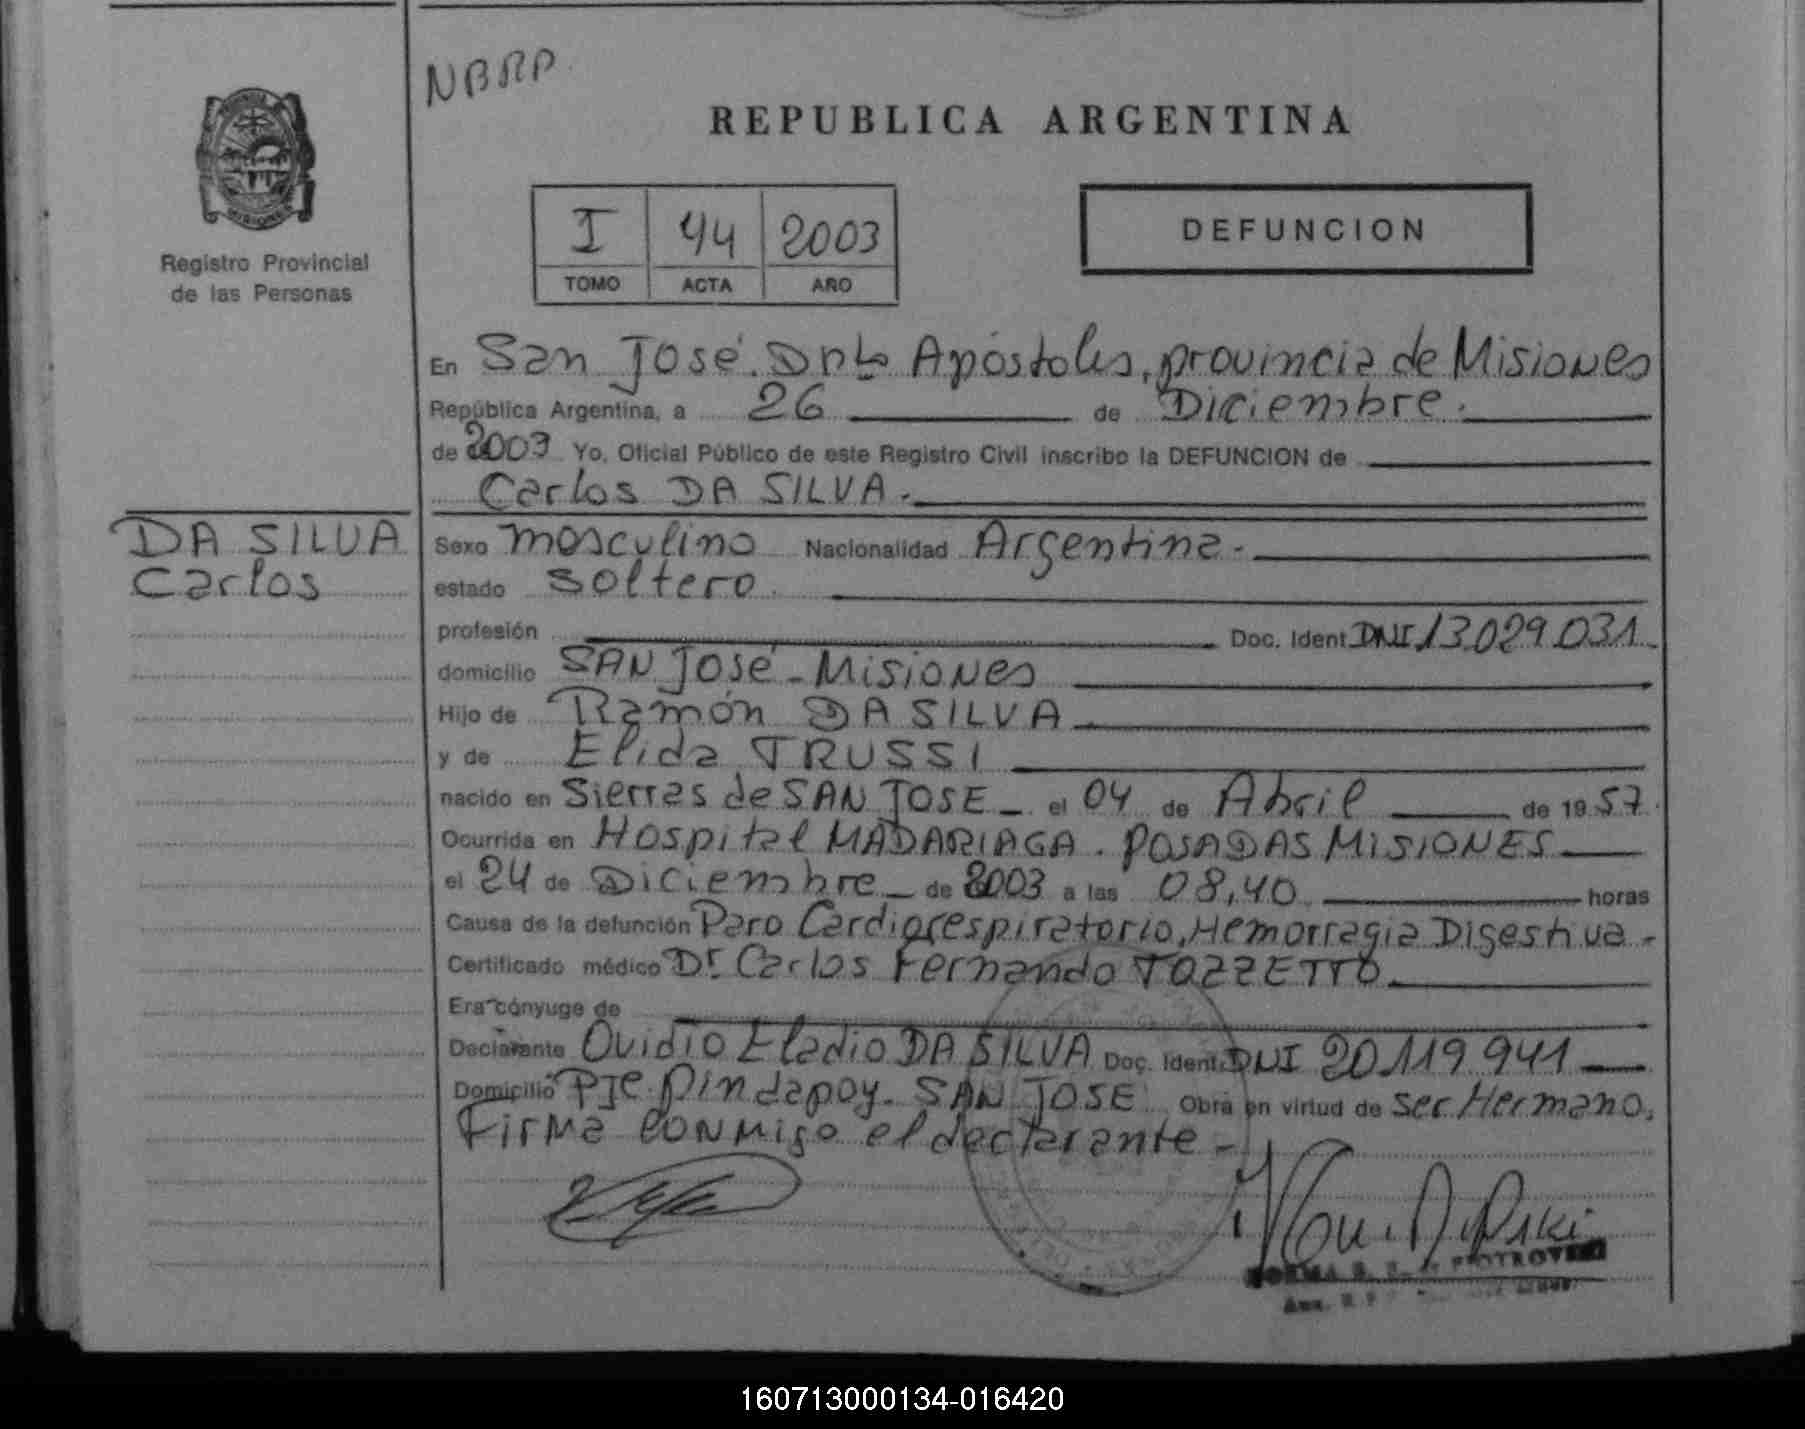 NBRP.
REPUBLICA ARGENTINA
Registro Provincial
de las Personas
I 44 2003
TOMO ACTA AÑO
DEFUNCION
En San José. Dpto Apóstoles, provincia de Misiones
República Argentina, a 26 de Diciembre.
de 2003 Yo, Oficial Público de este Registro Civil inscribo la DEFUNCION de
Carlos DA SILVA.
DA SILVA
Carlos
Sexo masculino Nacionalidad Argentina.
estado soltero.
profesión Doc. Ident DNI 13.029.031.
domicilio SAN José - Misiones
Hijo de Ramón DA SILVA
y de Elida TRUSSI
nacido en Sierras de SAN JOSE - el 04 de Abril de 1957.
Ocurrida en Hospital MADARIAGA. POSADAS MISIONES
el 24 de Diciembre - de 2003 a las 08,40 horas
Causa de la defunción Paro Cardiorespiratorio, Hemorragia Digestiva -
Certificado médico Dr. Carlos Fernando TOZZETTO
Era cónyuge de
Declarante Ovidio Eladio DA SILVA Doc. Ident. DNI 20.119.941
Domicilio Pje. Pindapoy. SAN JOSE Obra en virtud de ser Hermano,
Firma conmigo el declarante -
160713000134-016420